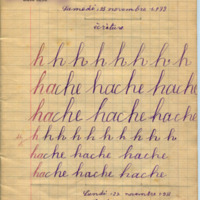 Samedi 28 novembre
écriture
h h h h h h h h
hache hache hache
hache hache hache
h h h h h h h h h h
hache hache hache
hache hache hache
Lundi novembre